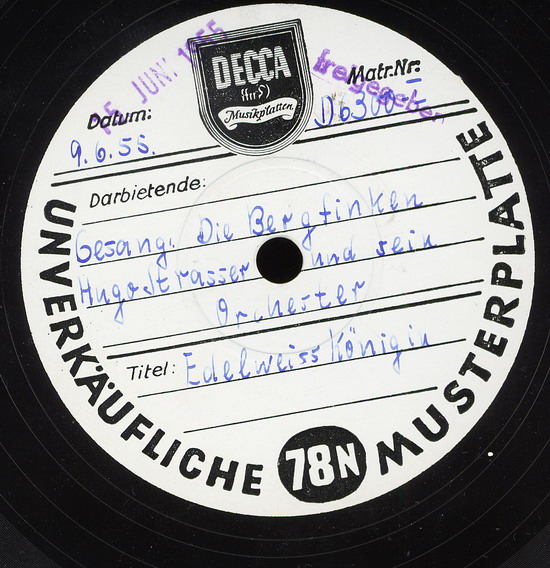 DECCA
ffrr
Musikplatten
15. JUNI 1955
freigegeben
Datum:
Matr.Nr:
9.6.55.
D6300
Darbietende:
Gesang: Die Bergfinken
Hugo Strasser und sein
Orchester
Titel: Edelweiss Königin
78N
UNVERKÄUFLICHE MUSTERPLATTE